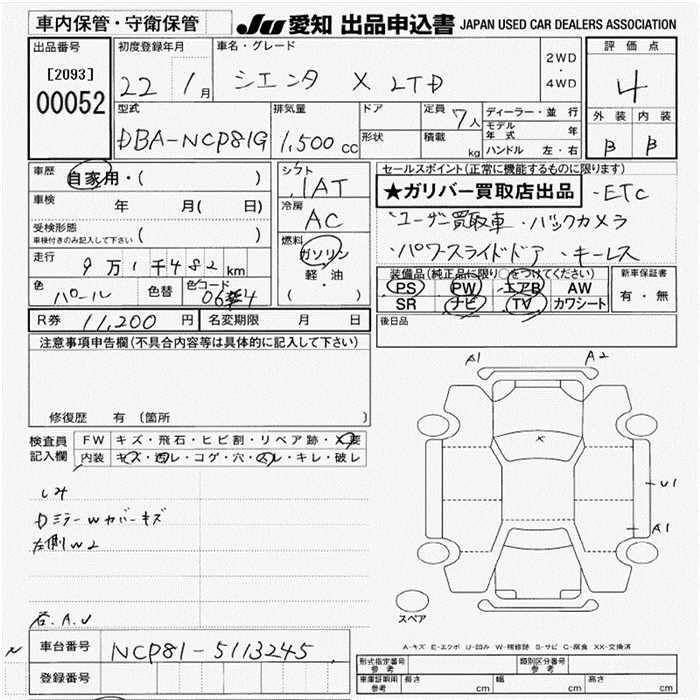 車内保管・守衛保管
JU 愛知 出品申込書 JAPAN USED CAR DEALERS ASSOCIATION
出品番号
[2093]
00052
初度登録年月
22 1月
車名・グレード
シエンタ X LTD
2WD
・
4WD
評価点
4
外装 内装
B B
型式
DBA-NCP81G
排気量
1,500 cc
ドア
形状
定員 7人
積載 kg
ディーラー・並行
モデル年式 年
ハンドル 左・右
車歴 自家用・( )
車検 年 月( 日)
受検形態
車検付きのみ記入して下さい ( )
走行 9万1千482km
色 パール 色替 色コード 064
シフト
IAT
冷房
AC
燃料
ガソリン
軽・油
( )
セールスポイント(正常に機能するものに限ります)
★ガリバー買取店出品 ・ETC
・ユーザー買取車 ・バックカメラ
・パワースライドドア ・キーレス
装備品(純正品に限り○をつけてください)
PS PW エアB AW
SR ナビ TV カワシート
新車保証書
有・無
後日品
R券 11,200円 名変期限 月 日
注意事項申告欄(不具合内容等は具体的に記入して下さい)
修復歴 有 〔箇所 〕
検査員
記入欄
FW キズ・飛石・ヒビ割・リペア跡・X要
内装 キズ・汚レ・コゲ・穴・スレ・キレ・破レ
Dミラーwカバーキズ
左側W2
右.A.U
A1 A2
X
U1
A1
スペア
A-キズ E-エクボ U-凹み W-補修跡 S-サビ C-腐食 XX-交換済
N
車台番号 NCP81-5113245
登録番号
形式指定番号
参考
類別区分番号
参考
車庫証明用
参考
長さ cm 幅 cm 高さ cm